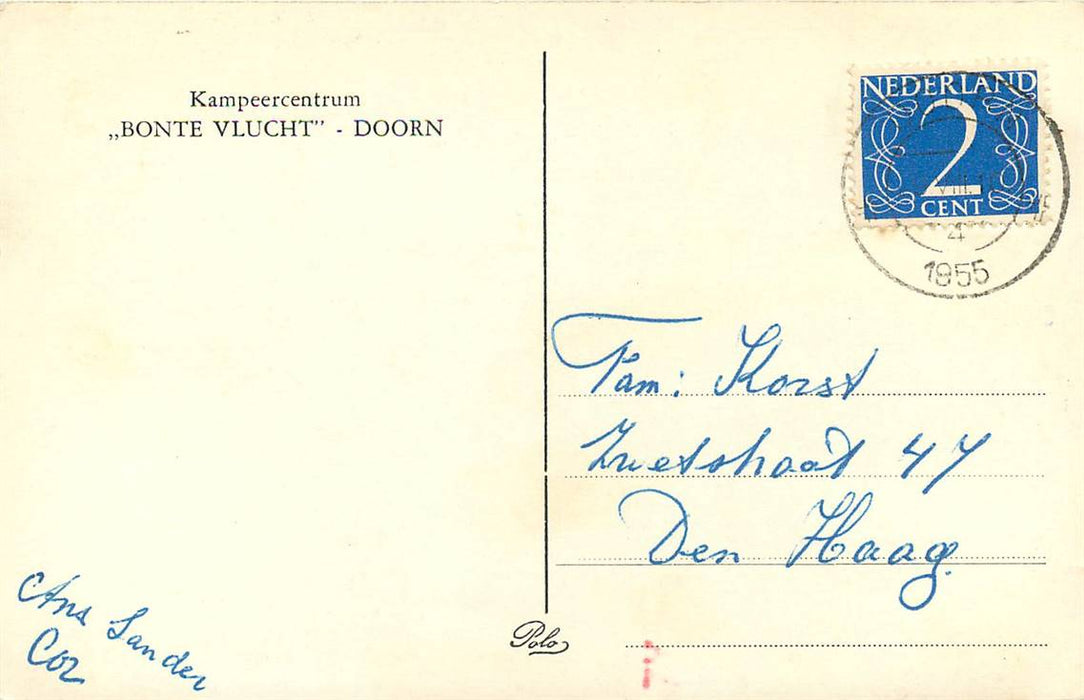 Kampeercentrum
„BONTE VLUCHT” - DOORN
NEDERLAND
2
CENT
VIII.
4
1955
Fam: Korst
47
Den Haag
Ans Sander
Cor
Polo